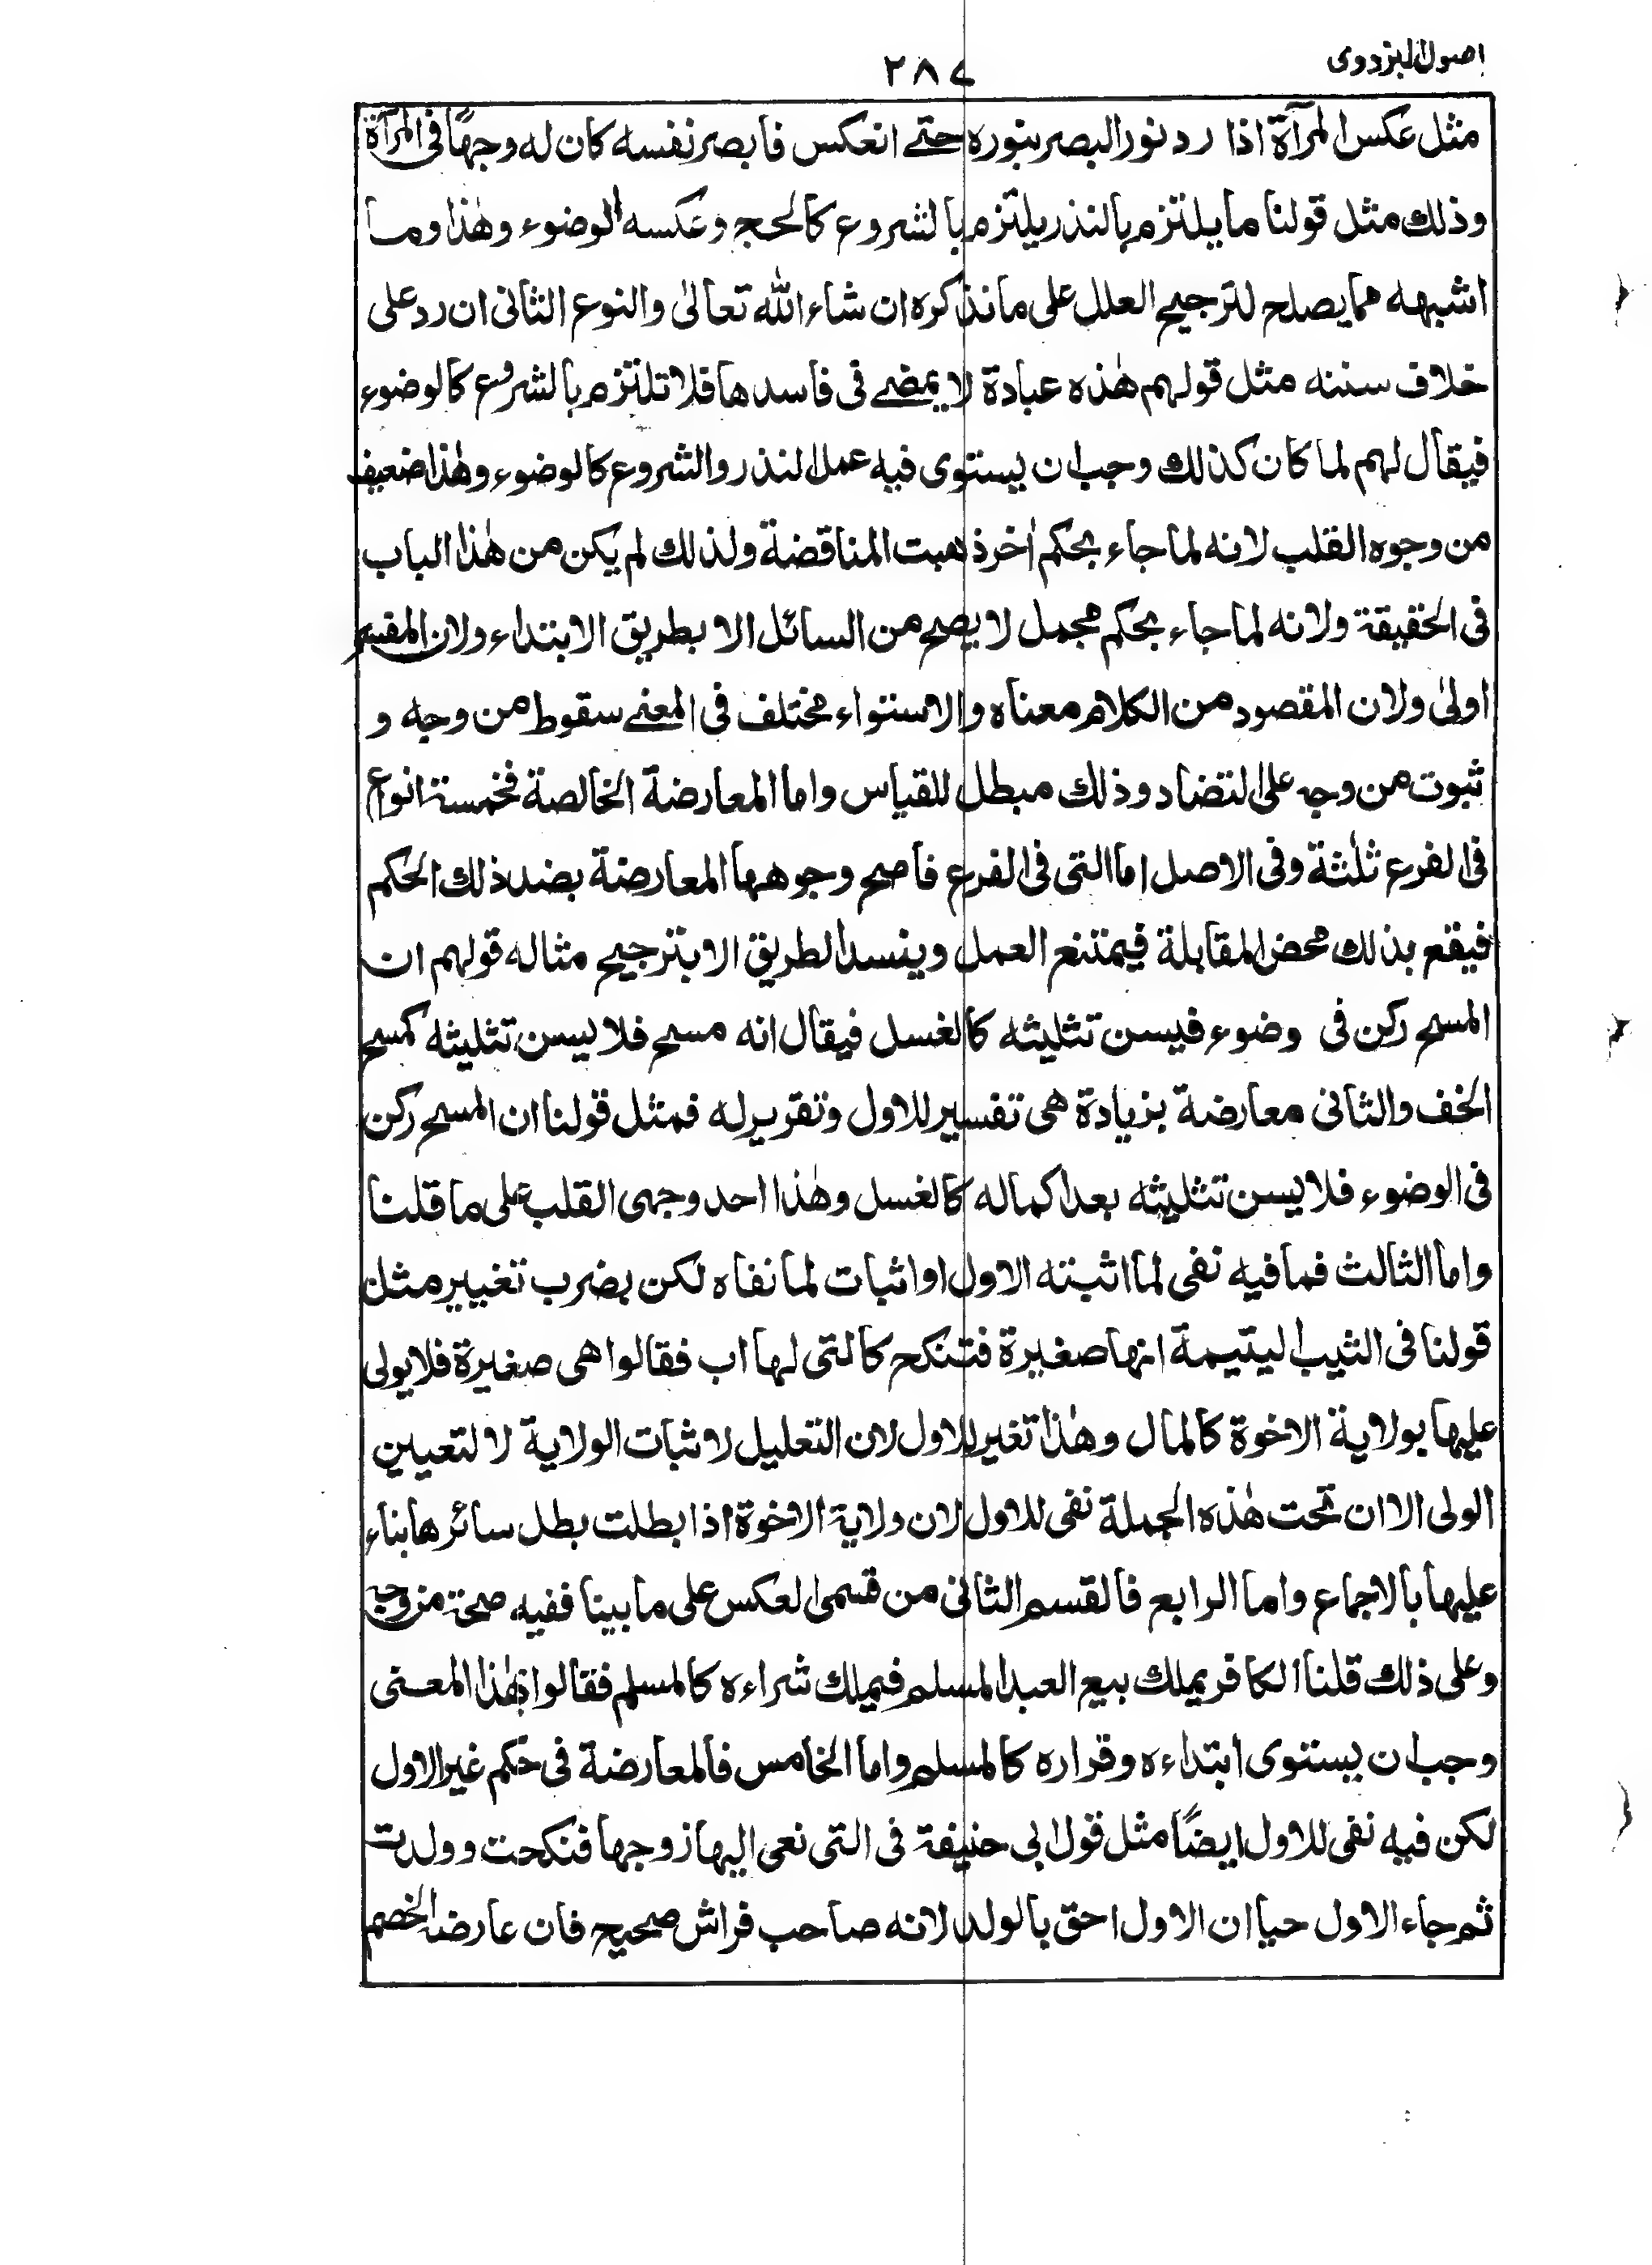 اصول البزدوی
٢٨٧
مثل عکس المرآة اذا رد نور البصر بنوره حتے انعکس فابصر نفسه کان له وجهًا فی المرآة
وذلك مثل قولنا ما یلتزم بالنذر یلتزم بالشروع کالحج وعکسه الوضوء وهٰذا وما
اشبهه مما یصلح لترجیح العلل علی ما نذکره ان شاء الله تعالیٰ والنوع الثانی ان رد علی
خلاف سننه مثل قولهم هٰذه عبادة لا یمضے فی فاسدها فلا تلتزم بالشروع کالوضوء
فیقال لهم لما کان کذلك وجب ان یستوی فیه عمل النذر والشروع کالوضوء وهٰذا ضعیف
من وجوه القلب لانه لما جاء بحکم اٰخر ذهبت المناقضة ولذلك لم یکن من هٰذا الباب
فی الحقیقة ولانه لما جاء بحکم مجمل لا یصح من السائل الا بطریق الابتداء ولان المفسر
اولیٰ ولان المقصود من الکلام معناه والاستواء مختلف فی المعنے سقوط من وجه و
ثبوت من وجه علی التضاد وذلك مبطل للقیاس واما المعارضة الخالصة فخمسة انواع
فی الفرع ثلٰثة وفی الاصل اما التی فی الفرع فاصح وجوهها المعارضة بضد ذلك الحکم
فیقع بذلك محض المقابلة فیمتنع العمل وینسد الطریق الا بترجیح مثاله قولهم ان
المسح رکن فی وضوء فیسن تثلیثه کالغسل فیقال انه مسح فلا یسن تثلیثه کمسح
الخف والثانی معارضة بزیادة هی تفسیر للاول وتقریر له فمثل قولنا ان المسح رکن
فی الوضوء فلا یسن تثلیثه بعد اکماله کالغسل وهٰذا احد وجهی القلب علی ما قلنا
واما الثالث فما فیه نفی لما اثبته الاول او اثبات لما نفاه لکن بضرب تغییر مثل
قولنا فی الثیب الیتیمة انها صغیرة فتنکح کالتی لها اب فقالوا هی صغیرة فلا یولی
علیها بولایة الاخوة کالمال وهٰذا تغیر للاول لان التعلیل لاثبات الولایة لا لتعیین
الولی الا ان تحت هٰذه الجملة نفی للاول لان ولایة الاخوة اذا بطلت بطل سائرها بناء
علیها بالاجماع واما الرابع فالقسم الثانی من قسمی العکس علی ما بینا ففیه صحة من وجه
وعلی ذلك قلنا الکافر یملك بیع العبد المسلم فیملك شراءه کالمسلم فقالوا بهٰذا المعنی
وجب ان یستوی ابتداءه وقراره کالمسلم واما الخامس فالمعارضة فی حکم غیر الاول
لکن فیه نفی للاول ایضًا مثل قول ابی حنیفة فی التی نعی الیها زوجها فنکحت وولدت
ثم جاء الاول حیا ان الاول احق بالولد لانه صاحب فراش صحیح فان عارضه الخصم